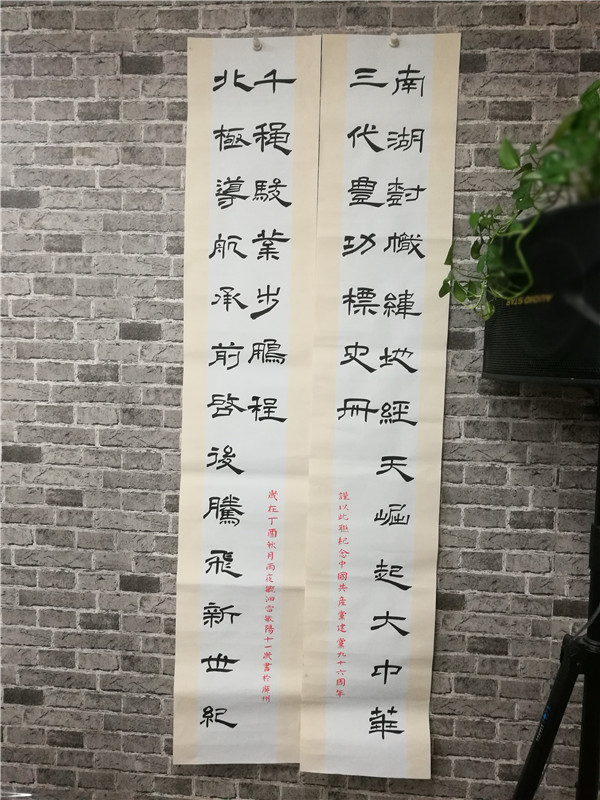 南湖樹幟緯地經天崛起大中華
三代豊功標史冊
謹以此聯紀念中國共産黨建黨九十六周年
北極導航承前啓後騰飛新世紀
千穐駿業步鵬程
歲在丁酉秋月雨花敏泗雪敏陽十一歲書於廣州